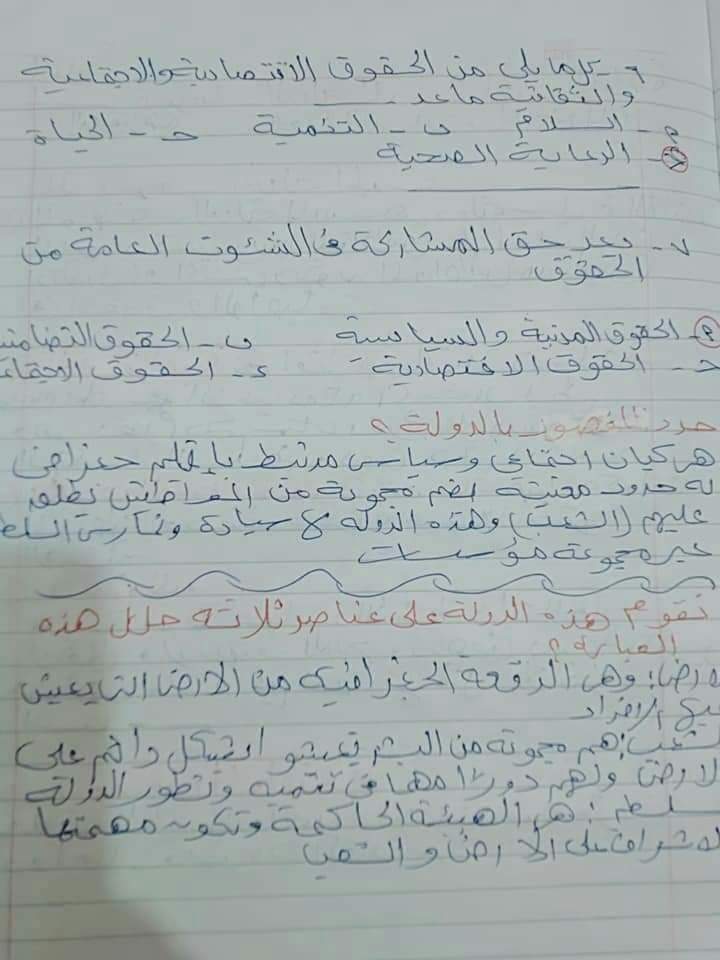 ٦- كل مما يلي من الحقوق الاقتصادية والاجتماعية
والثقافية ماعدا
أ- السلام ب- التنمية حـ- الحياة
د- الرعاية الصحية
٧- يعد حق المشاركة في الشئون العامة من
الحقوق
أ- الحقوق المدنية والسياسية ب- الحقوق التضامنية
حـ- الحقوق الاقتصادية ء- الحقوق الاجتماعية
حدد المقصود بالدولة؟
هي كيان اجتماعي وسياسي مرتبط بإقليم جغرافي
له حدود معينة يضم مجموعة من المواطنين يطلق
عليهم (الشعب) وهذه الدولة لا سيادة وتمارس السلطة
عبر مجموعة مؤسسات
تقوم هذه الدولة على عناصر ثلاثة حلل هذه
العبارة؟
أرض: وهي الرقعة الجغرافية من الارض التي يعيش
فيها الافراد
شعب: هم مجموعة من البشر يعيشو بشكل دائم على
الارض ولهم دورًا مهما في تنمية وتطور الدولة
سلطه: هي الهيئة الحاكمة وتكون مهمتها
الاشراف على الأرض والشعب